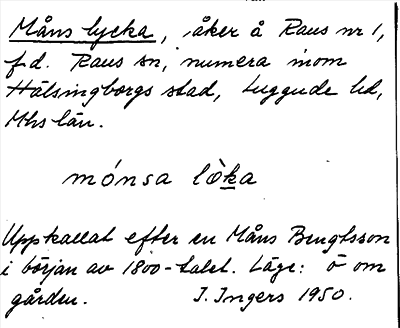 Måns lycka, åker å Raus nr 1,
f.d. Raus sn, numera inom
Hälsingborgs stad, Luggude hd,
Mhs län.
mónsa lòka
Uppkallat efter en Måns Bengtsson
i början av 1800-talet. Läge: ö om
gården. I. Ingers 1950.